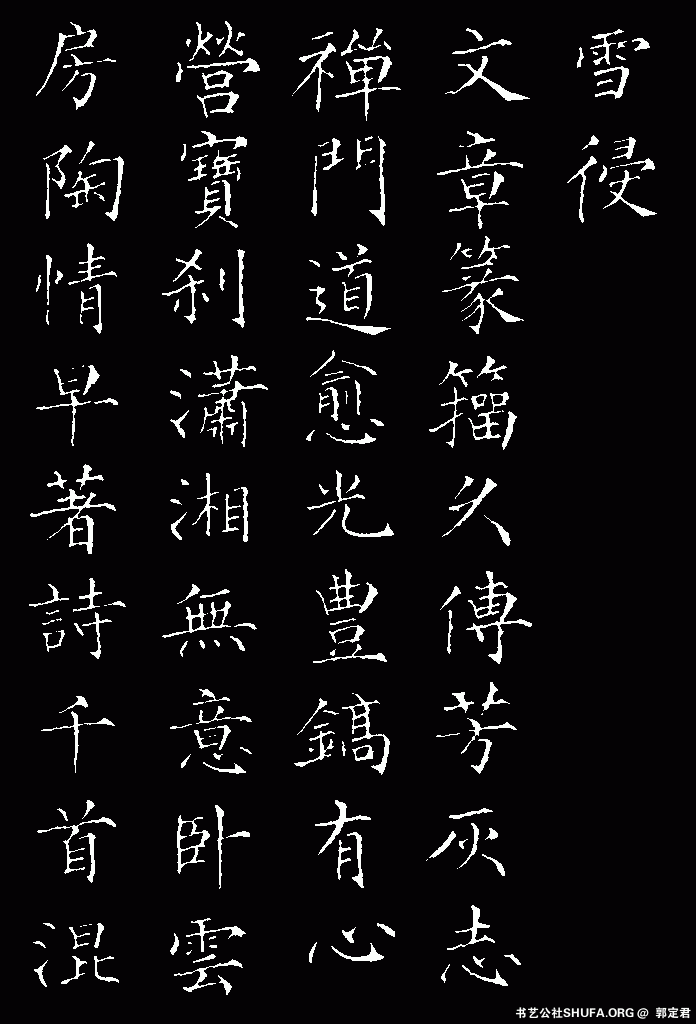 雪侵
文章篆籀久傳芳灰志
禪門道愈光豐鎬有心
營寶刹瀟湘無意卧雲
房陶情早著詩千首混
书艺公社SHUFA.ORG @ 郭定君